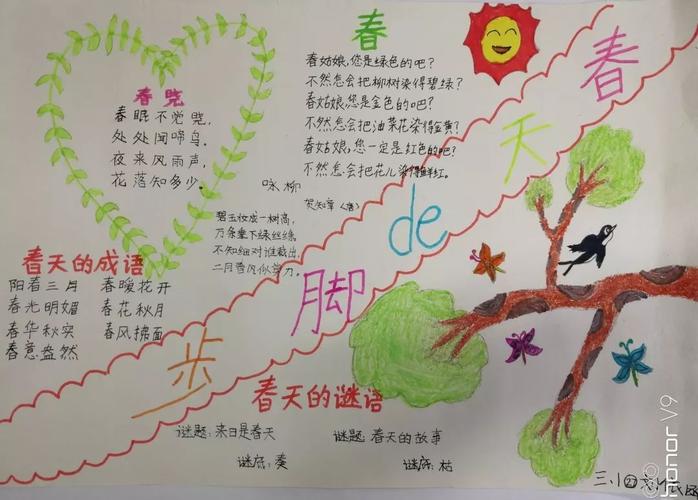 春
天
de
脚
步
春晓
春眠不觉晓,
处处闻啼鸟。
夜来风雨声,
花落知多少。
春
春姑娘,您是绿色的吧?
不然怎会把柳树染得碧绿?
春姑娘,您是金色的吧?
不然怎会把油菜花染得金黄?
春姑娘,您一定是红色的吧?
不然怎会把花儿染得鲜红。
咏柳
贺知章(唐)
碧玉妆成一树高,
万条垂下绿丝绦。
不知细叶谁裁出,
二月春风似剪刀。
春天的成语
阳春三月 春暖花开
春光明媚 春花秋月
春华秋实 春风拂面
春意盎然
春天的谜语
谜题:来日是春天
谜底:奏
谜题:春天的故事
谜底:枯
三小
honor V9